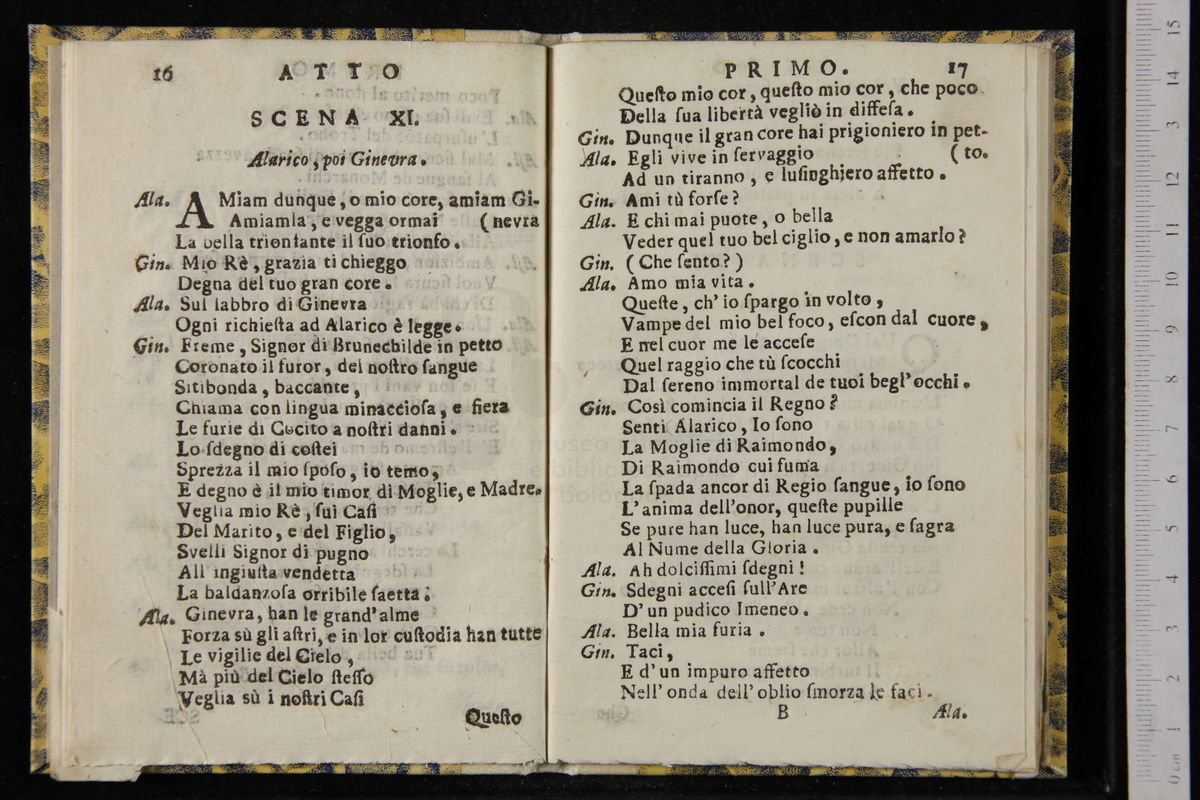 16 ATTO
SCENA XI.
Alarico, poi Ginevra.
Ala. AMiam dunque, o mio core, amiam Gi-
Amiamla, e vegga ormai (nevra
La bella trionfante il ſuo trionfo.
Gin. Mio Rè, grazia ti chieggo
Degna del tuo gran core.
Ala. Sul labbro di Ginevra
Ogni richieſta ad Alarico è legge.
Gin. Freme, Signor di Brunechilde in petto
Coronato il furor, del noſtro ſangue
Sitibonda, baccante,
Chiama con lingua minaccioſa, e fiera
Le furie di Cocito a noſtri danni.
Lo ſdegno di coſtei
Sprezza il mio ſpoſo, io temo,
E degno è il mio timor di Moglie, e Madre.
Veglia mio Rè, ſui Caſi
Del Marito, e del Figlio,
Svelli Signor di pugno
All' ingiuſta vendetta
La baldanzoſa orribile ſaetta.
Ala. Ginevra, han le grand'alme
Forza sù gli aſtri, e in lor cuſtodia han tutte
Le vigilie del Cielo,
Mà più del Cielo ſteſſo
Veglia sù i noſtri Caſi
Queſto
PRIMO. 17
Queſto mio cor, queſto mio cor, che poco
Della ſua libertà vegliò in diffeſa.
Gin. Dunque il gran core hai prigioniero in pet-
Ala. Egli vive in ſervaggio (to.
Ad un tiranno, e luſinghiero affetto.
Gin. Ami tù forſe?
Ala. E chi mai puote, o bella
Veder quel tuo bel ciglio, e non amarlo?
Gin. (Che ſento?)
Ala. Amo mia vita.
Queſte, ch' io ſpargo in volto,
Vampe del mio bel foco, eſcon dal cuore,
E nel cuor me le acceſe
Quel raggio che tù ſcocchi
Dal ſereno immortal de tuoi begl'occhi.
Gin. Così comincia il Regno?
Senti Alarico, Io ſono
La Moglie di Raimondo,
Di Raimondo cui fuma
La ſpada ancor di Regio ſangue, io ſono
L'anima dell'onor, queſte pupille
Se pure han luce, han luce pura, e ſagra
Al Nume della Gloria.
Ala. Ah dolciſſimi ſdegni!
Gin. Sdegni acceſi ſull'Are
D' un pudico Imeneo.
Ala. Bella mia furia.
Gin. Taci,
E d' un impuro affetto
Nell' onda dell' oblio ſmorza le faci.
B Ala.